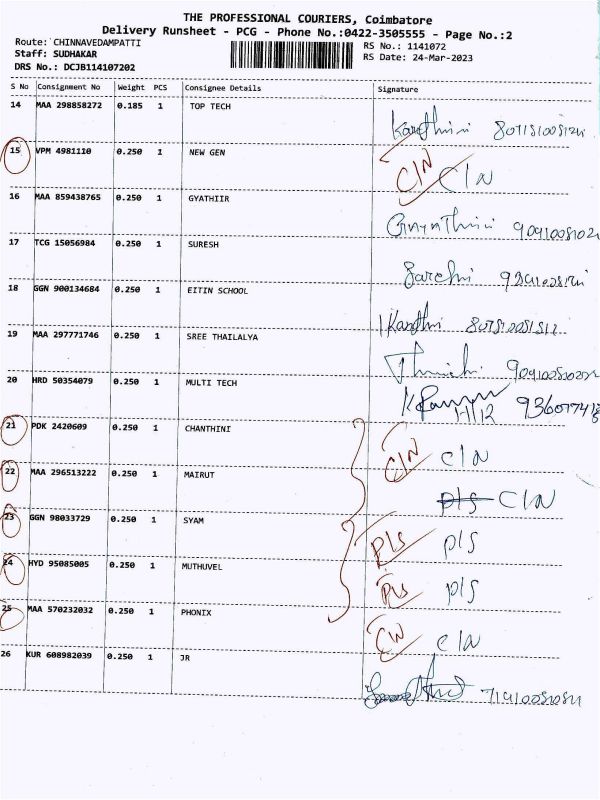 THE PROFESSIONAL COURIERS, Coimbatore
Delivery Runsheet - PCG - Phone No.:0422-3505555 - Page No.:2
Route: CHINNAVEDAMPATTI
RS No.: 1141072
Staff: SUDHAKAR
RS Date: 24-Mar-2023
DRS No.: DCJB114107202
S No Consignment No Weight PCS Consignee Details Signature
14 MAA 298858272 0.185 1 TOP TECH
15 VPM 4981110 0.250 1 NEW GEN CIN CIN
16 MAA 859438765 0.250 1 GYATHIIR
17 TCG 15056984 0.250 1 SURESH
18 GGN 900134684 0.250 1 EITIN SCHOOL
19 MAA 297771746 0.250 1 SREE THAILALYA
20 HRD 50354079 0.250 1 MULTI TECH
21 PDK 2420609 0.250 1 CHANTHINI CIN CIN
22 MAA 296513222 0.250 1 MAIRUT pls CIN
23 GGN 98033729 0.250 1 SYAM pls pls
24 HYD 95085005 0.250 1 MUTHUVEL pls pls
25 MAA 570232032 0.250 1 PHONIX CIN CIN
26 KUR 608982039 0.250 1 JR